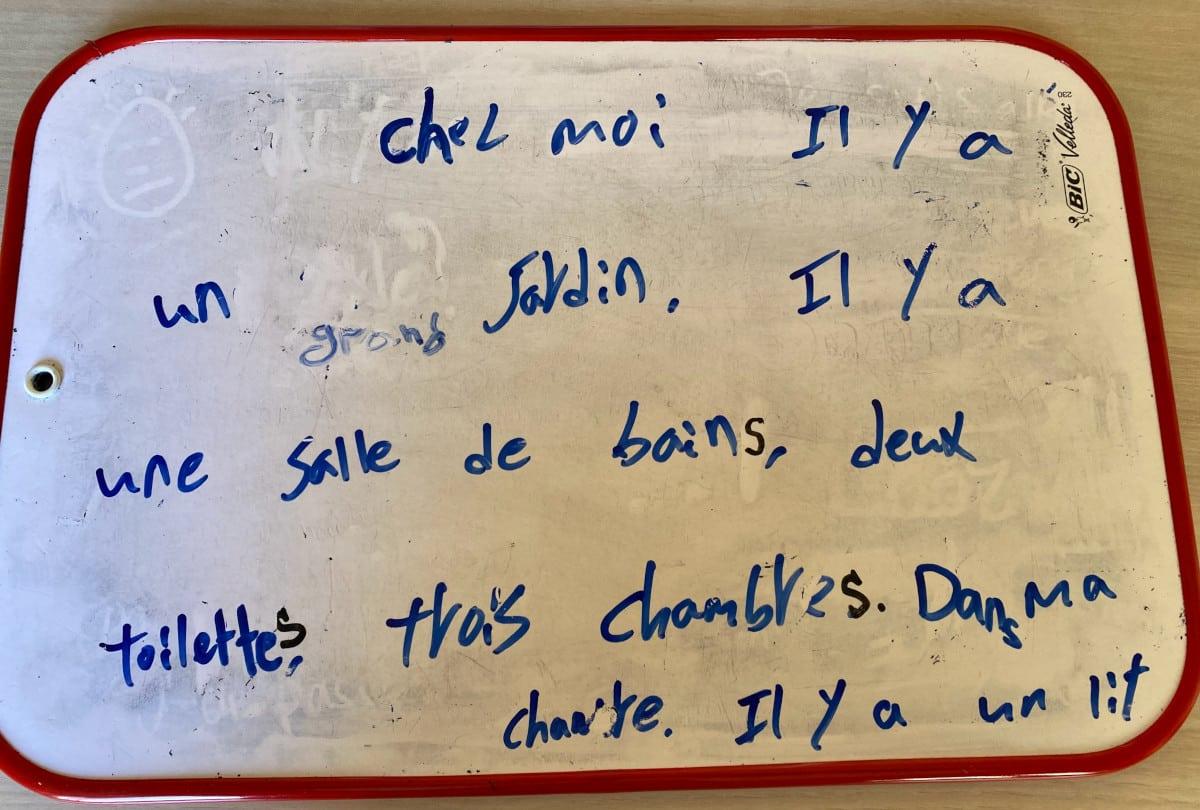 chez moi Il y a
un grand Jardin. Il y a
une salle de bains, deux
toilettes, trois chambres. Dans ma
Il y a un lit
BIC Velleda
230